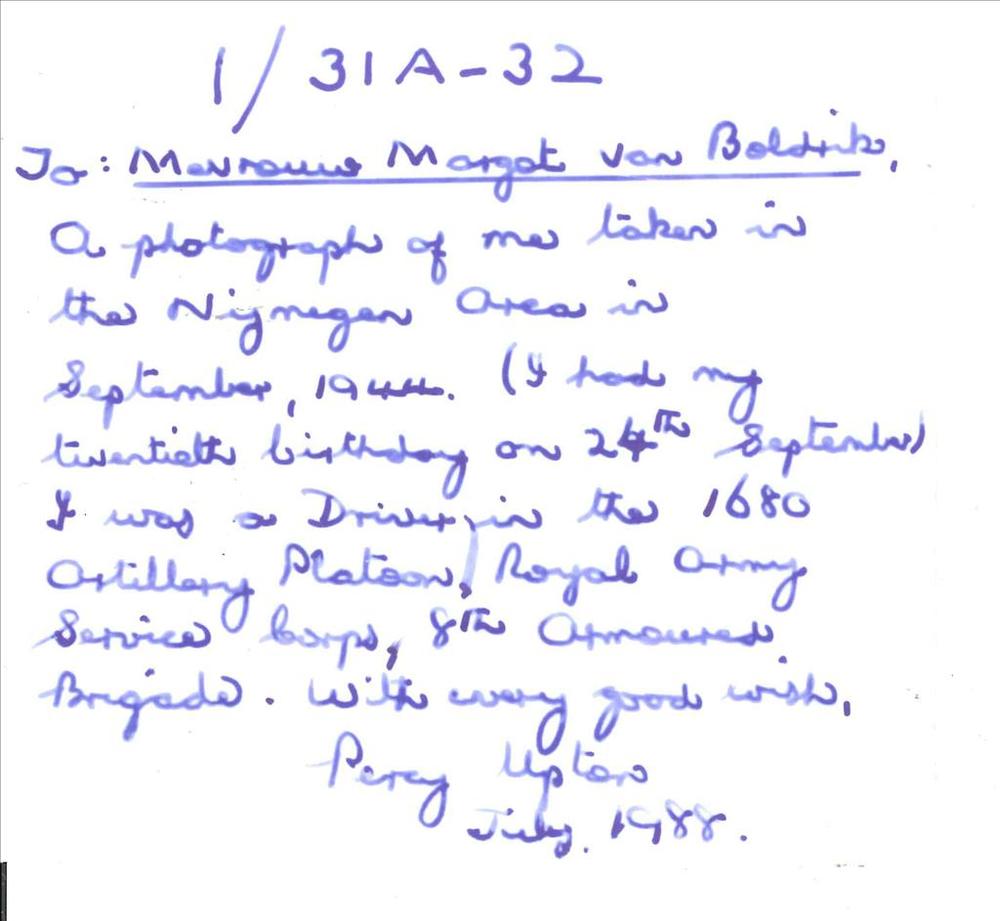 1/31A-32
To: Mevrouw Margot van Boldrik,
A photograph of me taken in
the Nijmegen Area in
September, 1944. (I had my
twentieth birthday on 24th September)
I was a Driver, in the 1680
Artillery Platoon, Royal Army
Service Corps, 8th Armoured
Brigade. With every good wish,
Percy Upton
July, 1988.